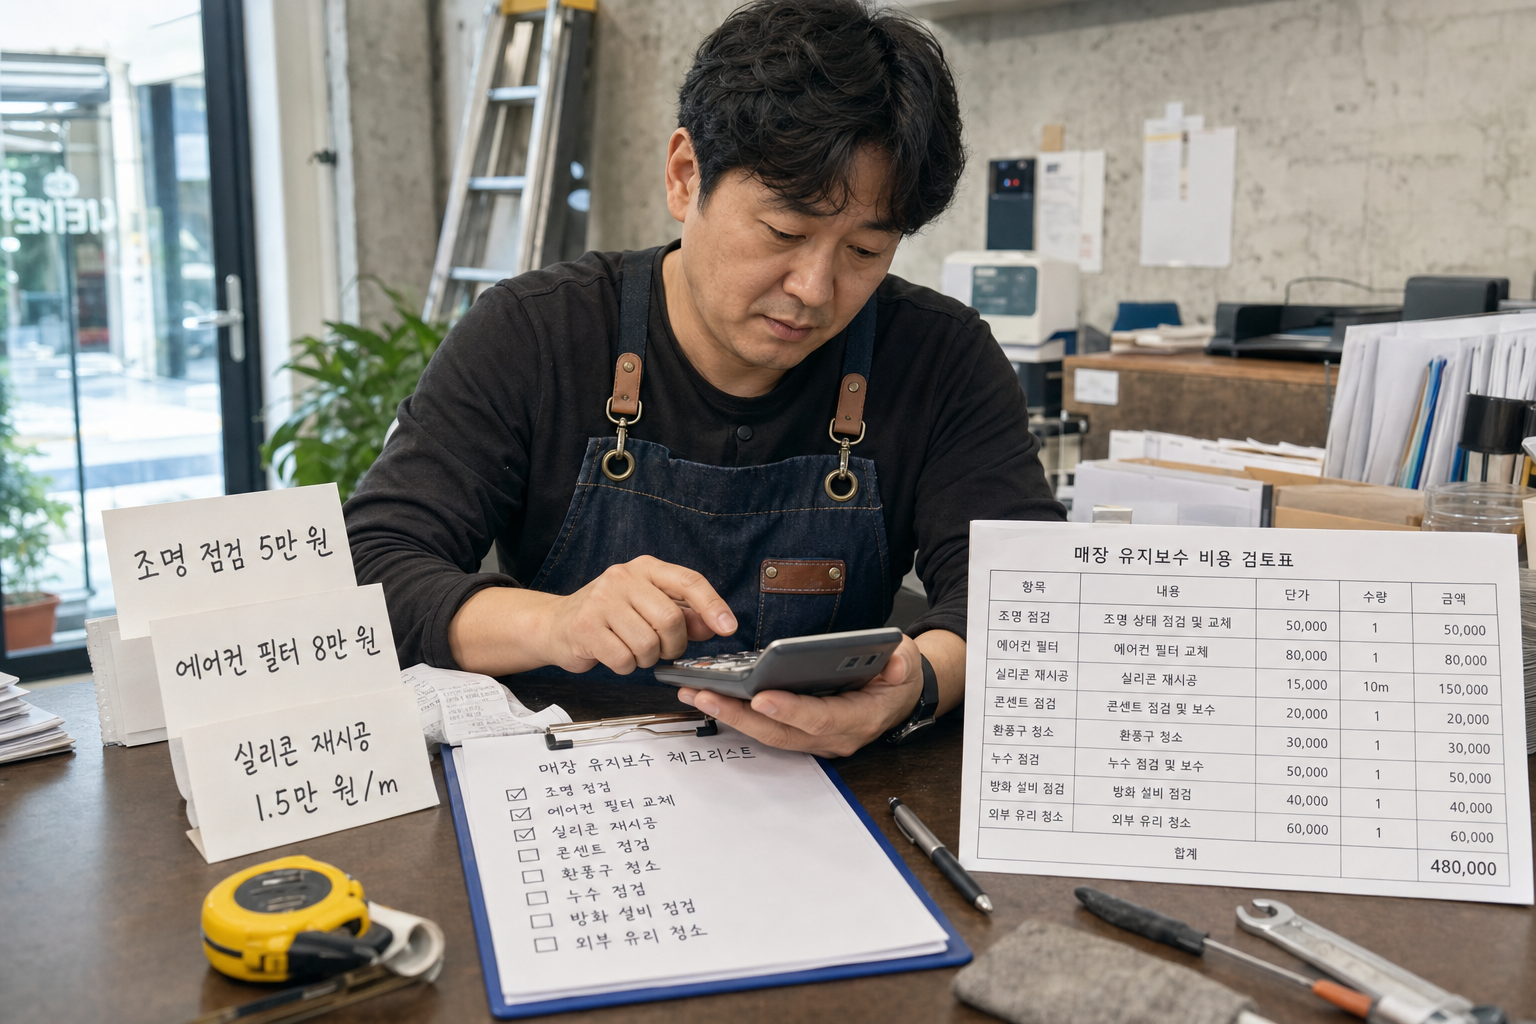 조명 점검 5만 원
에어컨 필터 8만 원
실리콘 재시공
1.5만 원/m
매장 유지보수 체크리스트
조명 점검
에어컨 필터 교체
실리콘 재시공
콘센트 점검
환풍구 청소
누수 점검
방화 설비 점검
외부 유리 청소
매장 유지보수 비용 검토표
항목 내용 단가 수량 금액
조명 점검 조명 상태 점검 및 교체 50,000 1 50,000
에어컨 필터 에어컨 필터 교체 80,000 1 80,000
실리콘 재시공 실리콘 재시공 15,000 10m 150,000
콘센트 점검 콘센트 점검 및 보수 20,000 1 20,000
환풍구 청소 환풍구 청소 30,000 1 30,000
누수 점검 누수 점검 및 보수 50,000 1 50,000
방화 설비 점검 방화 설비 점검 40,000 1 40,000
외부 유리 청소 외부 유리 청소 60,000 1 60,000
합계 480,000